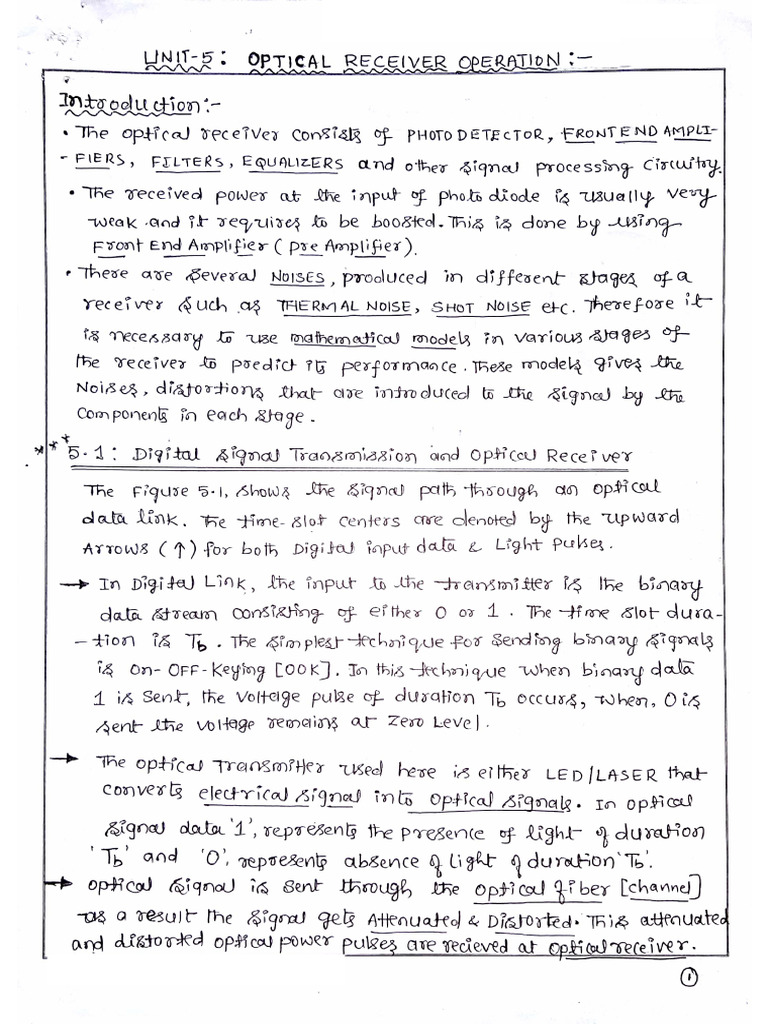 UNIT-5: OPTICAL RECEIVER OPERATION:-
Introduction:-
• The optical receiver consists of PHOTODETECTOR, FRONT END AMPLI-
- FIERS, FILTERS, EQUALIZERS and other signal processing circuitry.
• The received power at the input of photo diode is usually very
weak and it requires to be boosted. This is done by using
Front End Amplifier (Pre Amplifier).
• There are several NOISES, produced in different stages of a
receiver such as THERMAL NOISE, SHOT NOISE etc. Therefore it
is necessary to use mathematical models in various stages of
the receiver to predict its performance. These models gives the
Noises, distortions that are introduced to the signal by the
Components in each stage.
*** 5.1: Digital Signal Transmission and Optical Receiver
The Figure 5.1, shows the signal path through an optical
data link. The time-slot centers are denoted by the upward
Arrows (↑) for both Digital input data & Light pulses.
→ In Digital Link, the input to the transmitter is the binary
data stream consisting of either 0 or 1. The time slot dura-
- tion is Tb. The simplest technique for sending binary signals
is On-OFF-Keying [OOK]. In this technique when binary data
1 is sent, the voltage pulse of duration Tb occurs, when, 0 is
sent the voltage remains at Zero Level.
→ The optical Transmitter used here is either LED/LASER that
converts electrical signal into optical signals. In optical
signal data '1', represents the presence of light of duration
'Tb' and '0', represents absence of light of duration 'Tb'.
→ Optical signal is sent through the optical fiber [channel]
as a result the signal gets Attenuated & Distorted. This attenuated
and distorted optical power pulses are recieved at optical receiver.
1